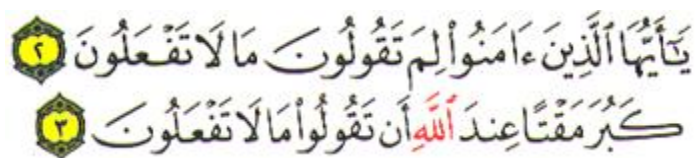 يَٰٓأَيُّهَا ٱلَّذِينَ ءَامَنُوا۟ لِمَ تَقُولُونَ مَا لَا تَفْعَلُونَ ٢
كَبُرَ مَقْتًا عِندَ ٱللَّهِ أَن تَقُولُوا۟ مَا لَا تَفْعَلُونَ ٣